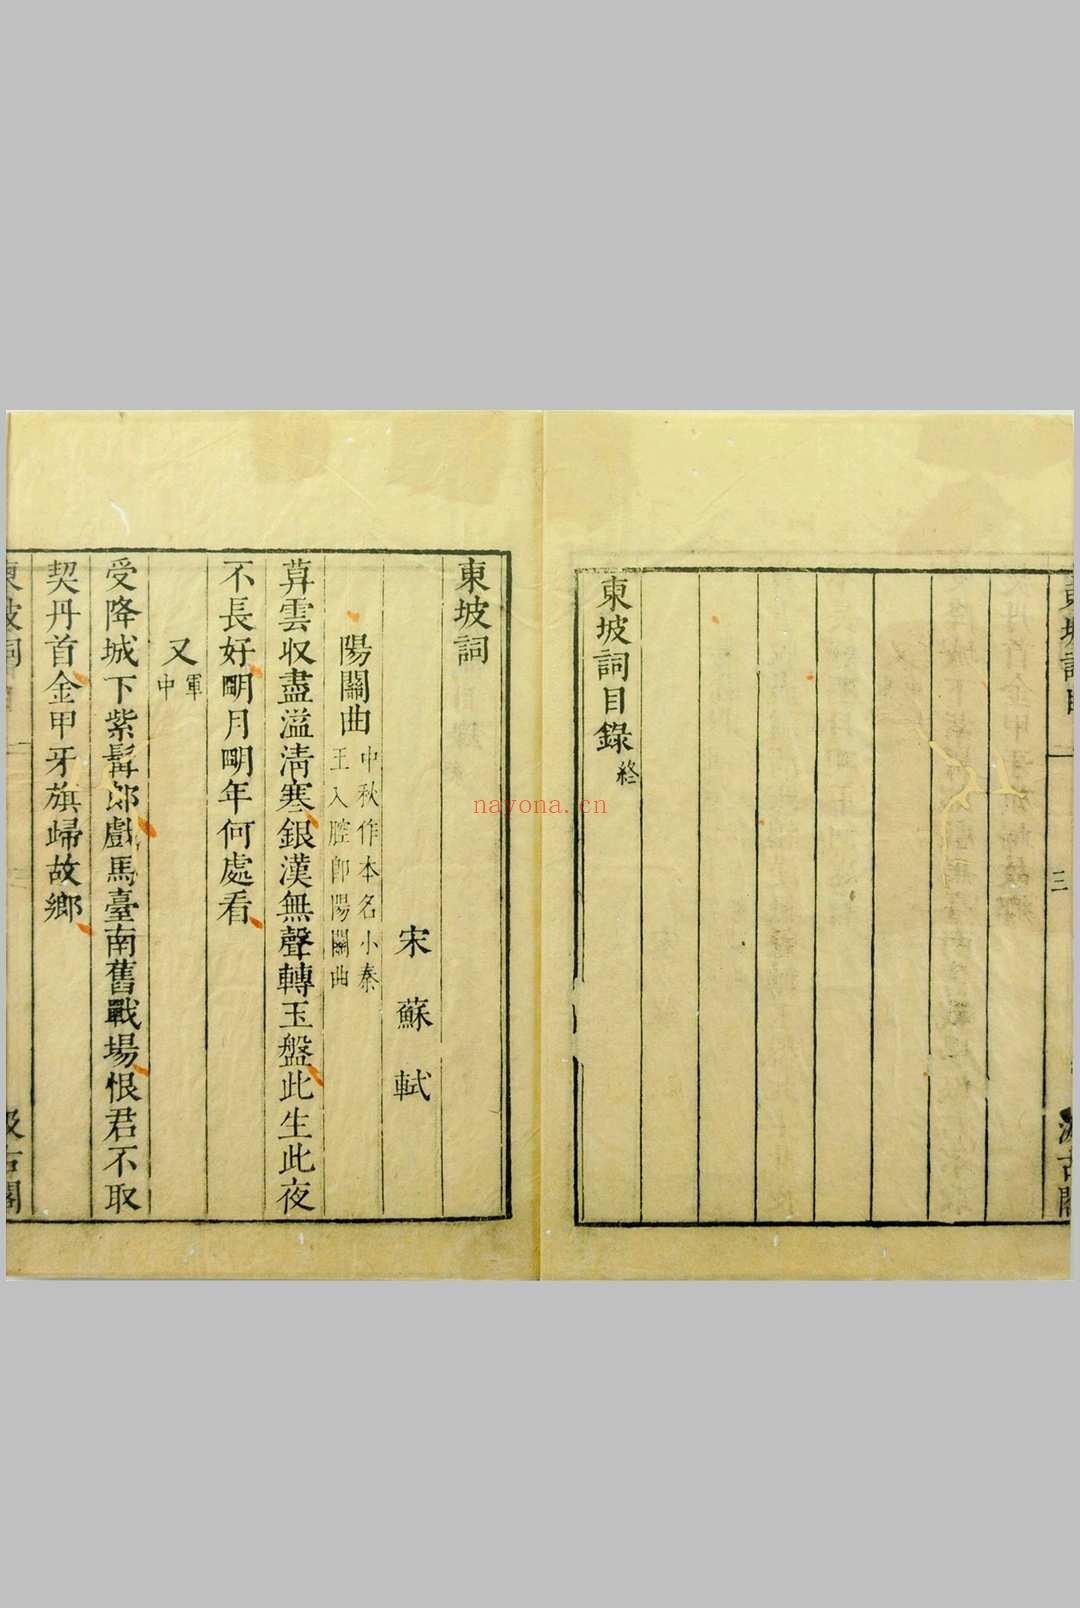 東坡詞目錄終
三
東坡詞
宋 蘇 軾
陽關曲 中秋作本名小秦
王入腔卽陽關曲
萛雲収盡溢清寒銀漢無聲轉玉盤此生此夜
不長好明月明年何處看
又 軍
中
受降城下紫髯郎戲馬臺南舊戰場恨君不取
契丹首金甲牙旗歸故鄉
nayona.cn